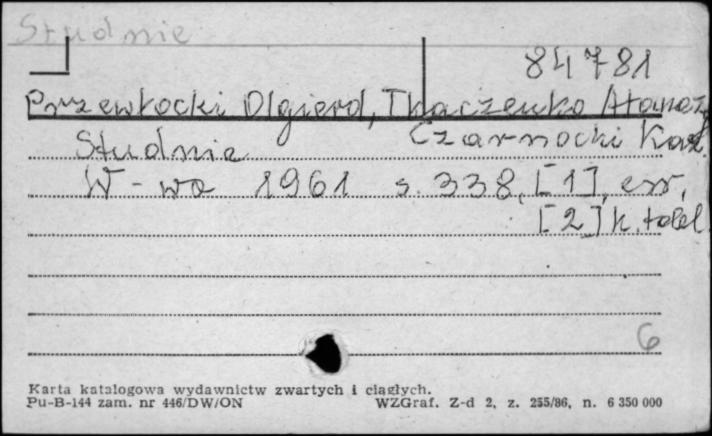 Studnie
84781
Przewłocki Olgierd, Tkaczenko Atanaz,
Czarnocki Kaz.
Studnie
W-wa 1961 s. 338, [1], err,
[2] k. tabl
6
Karta katalogowa wydawnictw zwartych i ciągłych.
Pu-B-144 zam. nr 446/DW/ON WZGraf. Z-d 2, z. 255/86, n. 6 350 000